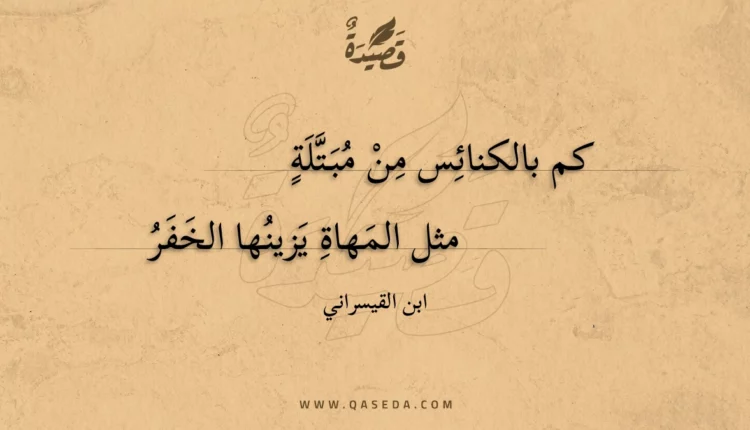 قَصِيْدَةٌ
كم بالكنائِس مِنْ مُبَتَّلَةٍ
مثل المَهاةِ يَزينُها الخَفَرُ
ابن القيسراني
WWW.QASEDA.COM